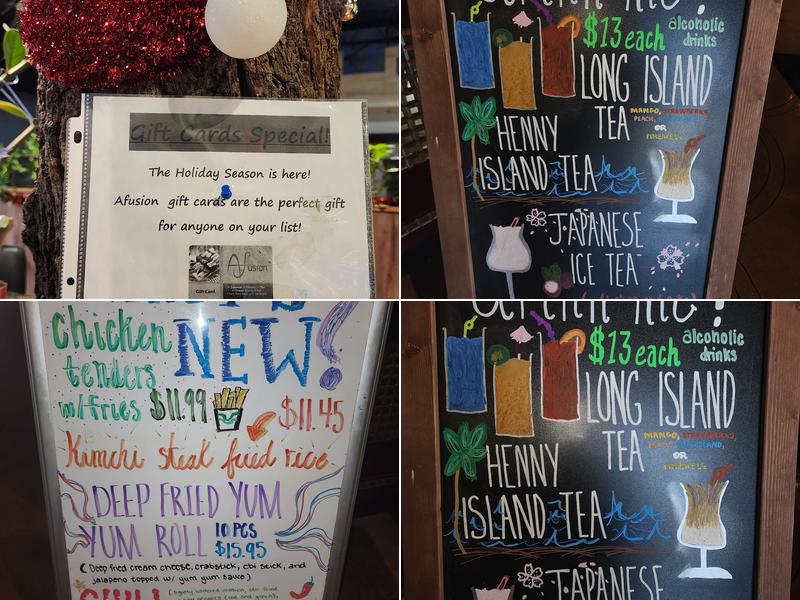 Gift Cards Special!
The Holiday Season is here!
Afusion gift cards are the perfect gift
for anyone on your list!
Afusion
Gift Card
$13 each alcoholic
drinks
LONG ISLAND
TEA
MANGO, STRAWBERRY,
PEACH,
OR
HENNY
ISLAND TEA
JAPANESE
ICE TEA
NEW!
chicken
tenders
w/fries $11.99
$11.45
Kimchi steak fried rice
DEEP FRIED YUM
YUM ROLL 10 PCS
$15.95
(Deep fried cream cheese, crabstick, ebi stick, and
jalapeno topped w/ yum yum sauce)
$13 each alcoholic
drinks
LONG ISLAND
TEA
MANGO, STRAWBERRY,
OR
HENNY
ISLAND TEA
JAPANESE